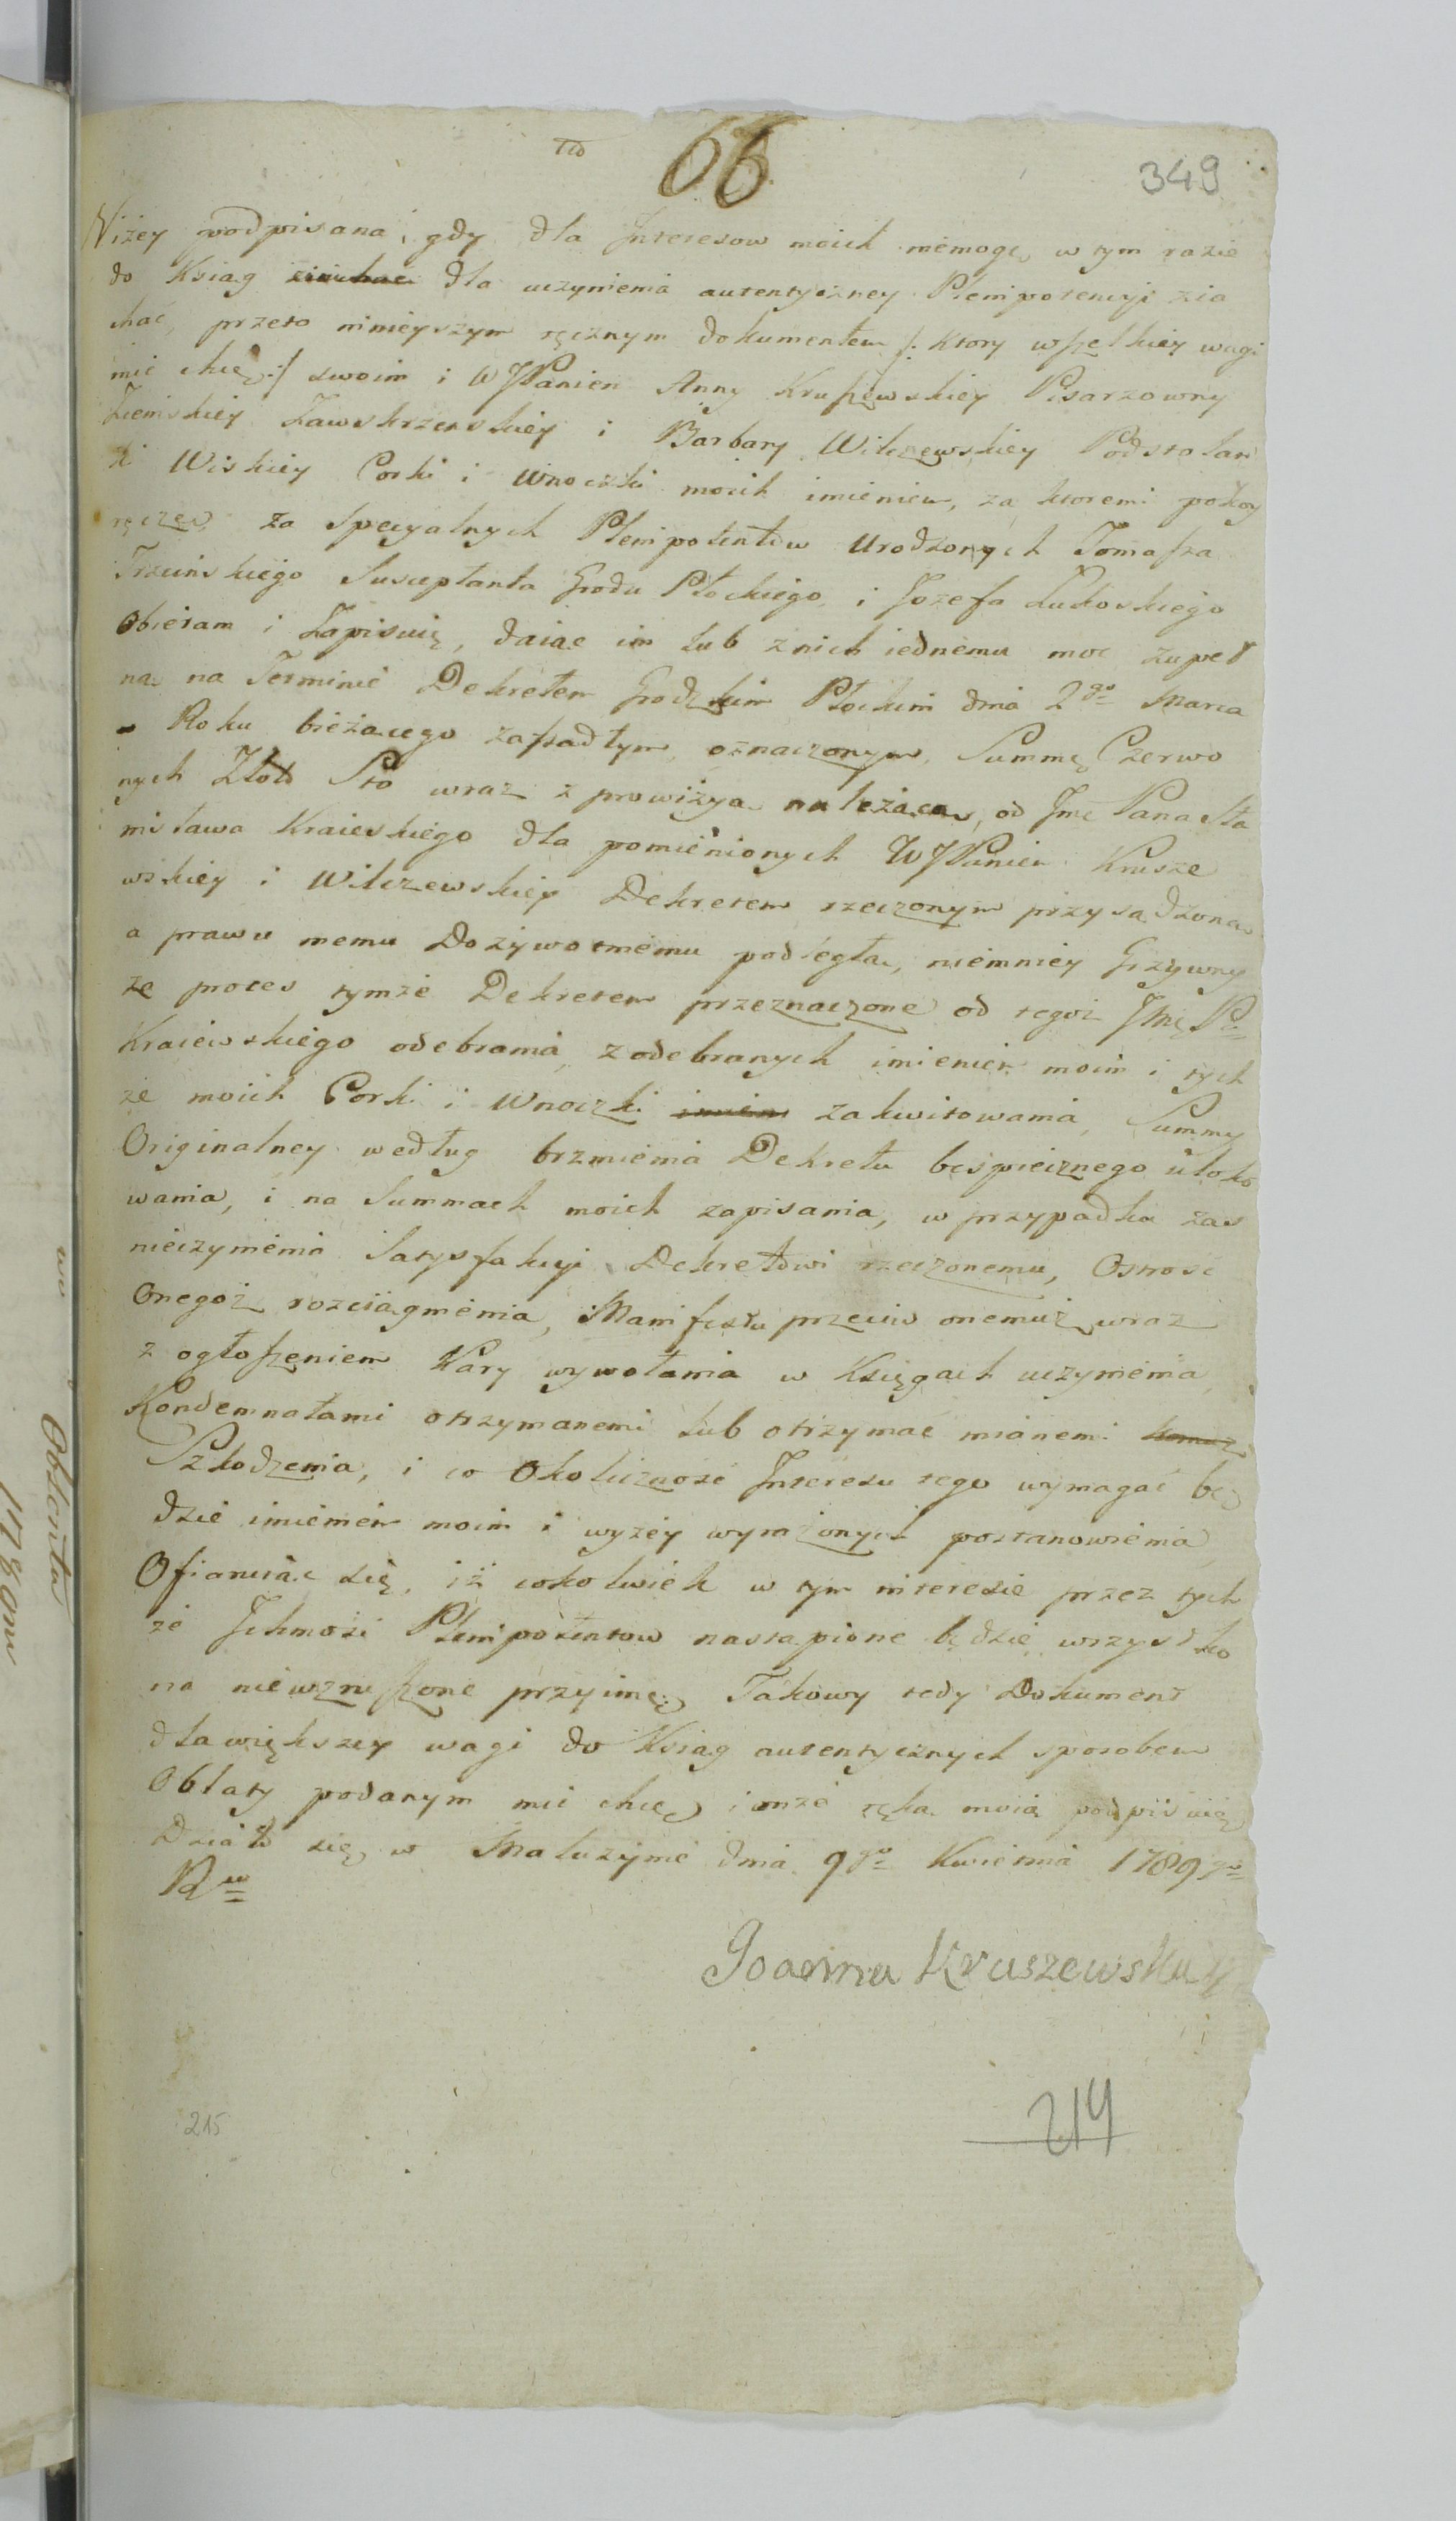 66
349
Niżey podpisana, gdy dla Jnteresow moich niemogę w tym razie
do Ksiąg ziechać dla uczynienia autentyczney Plenipotencyi zia
chać, przeto ninieyszym ręcznym dokumentem /: ktory wszelkiey wagi
mić chcę :/ swoim i WJPanien Anny Kruszewskiey Pisarzowny
Ziemskiey Zawskrzenskiey i Barbary Wilczewskiey Podstolan
ki Wiskiey Corki i Wnoczki moich imieniem, za ktoremi
ręczę, za Specyalnych Plenipotentow Urodzonych Tomasza
Trzcinskiego Susceptanta Grodu Płockiego, i Jozefa Lukoskiego
Obieram i Zapisuię, daiąc im lub z nich iednemu moc zupeł
ną na Terminie Dekretem Grodzkim Płockim dnia 2go Marca
Roku bieżącego zapadłym, oznaczonym, Summę Czerwo
nych Złot Sto wraz z prowizyą należącą, od Jmć Pana Sta
nisława Kraiewskiego dla pomienionych WJPanien Krusze
wskiey i Wilczewskiey Dekretem rzeczonym przysądzoną
a prawu memu Dożywotniemu podległą, niemniey Grzywny
ze proces tymże Dekretem przeznaczone od tegoż Jmć Pa
Kraiewskiego odebrania, z odebranych imieniem moim i tych
że moich Corki i Wnoczki imien zakwitowania, Summy
Originalney według brzmienia Dekretu bespiecznego uloko
wania, i na Summach moich zapisania, w przypadku zas
nieczynienia Satysfakcyi Dekretowi rzeczonemu, Ostrosc
Onegoż rozciągnienia, Manifestu przeciw onemuż wraz
z ogłoszeniem Kary wywołania w Księgach uczynienia
Kondemnatami otrzymanemi lub otrzymać mianemi
Szkodzenia, i co Okoliczność Jnteresu tego wymagać bę
dzie imieniem moim i wyżey wyrażonych postanowienia
Ofiaruiąc się, iż cokolwiek w tym interesie przez tych
że Jchmość Plenipotentow nastąpione będzie wszystko
na niewzruszone przyimę. Takowy tedy Dokument
dla większey wagi do Ksiąg autentycznych sposobem
Oblaty podanym mić chcę i onże ręką moią podpisuię
Działo się w Maluzynie dnia 9go Kwietnia 1789go
Rw
Joanna Kruszewska
215
214